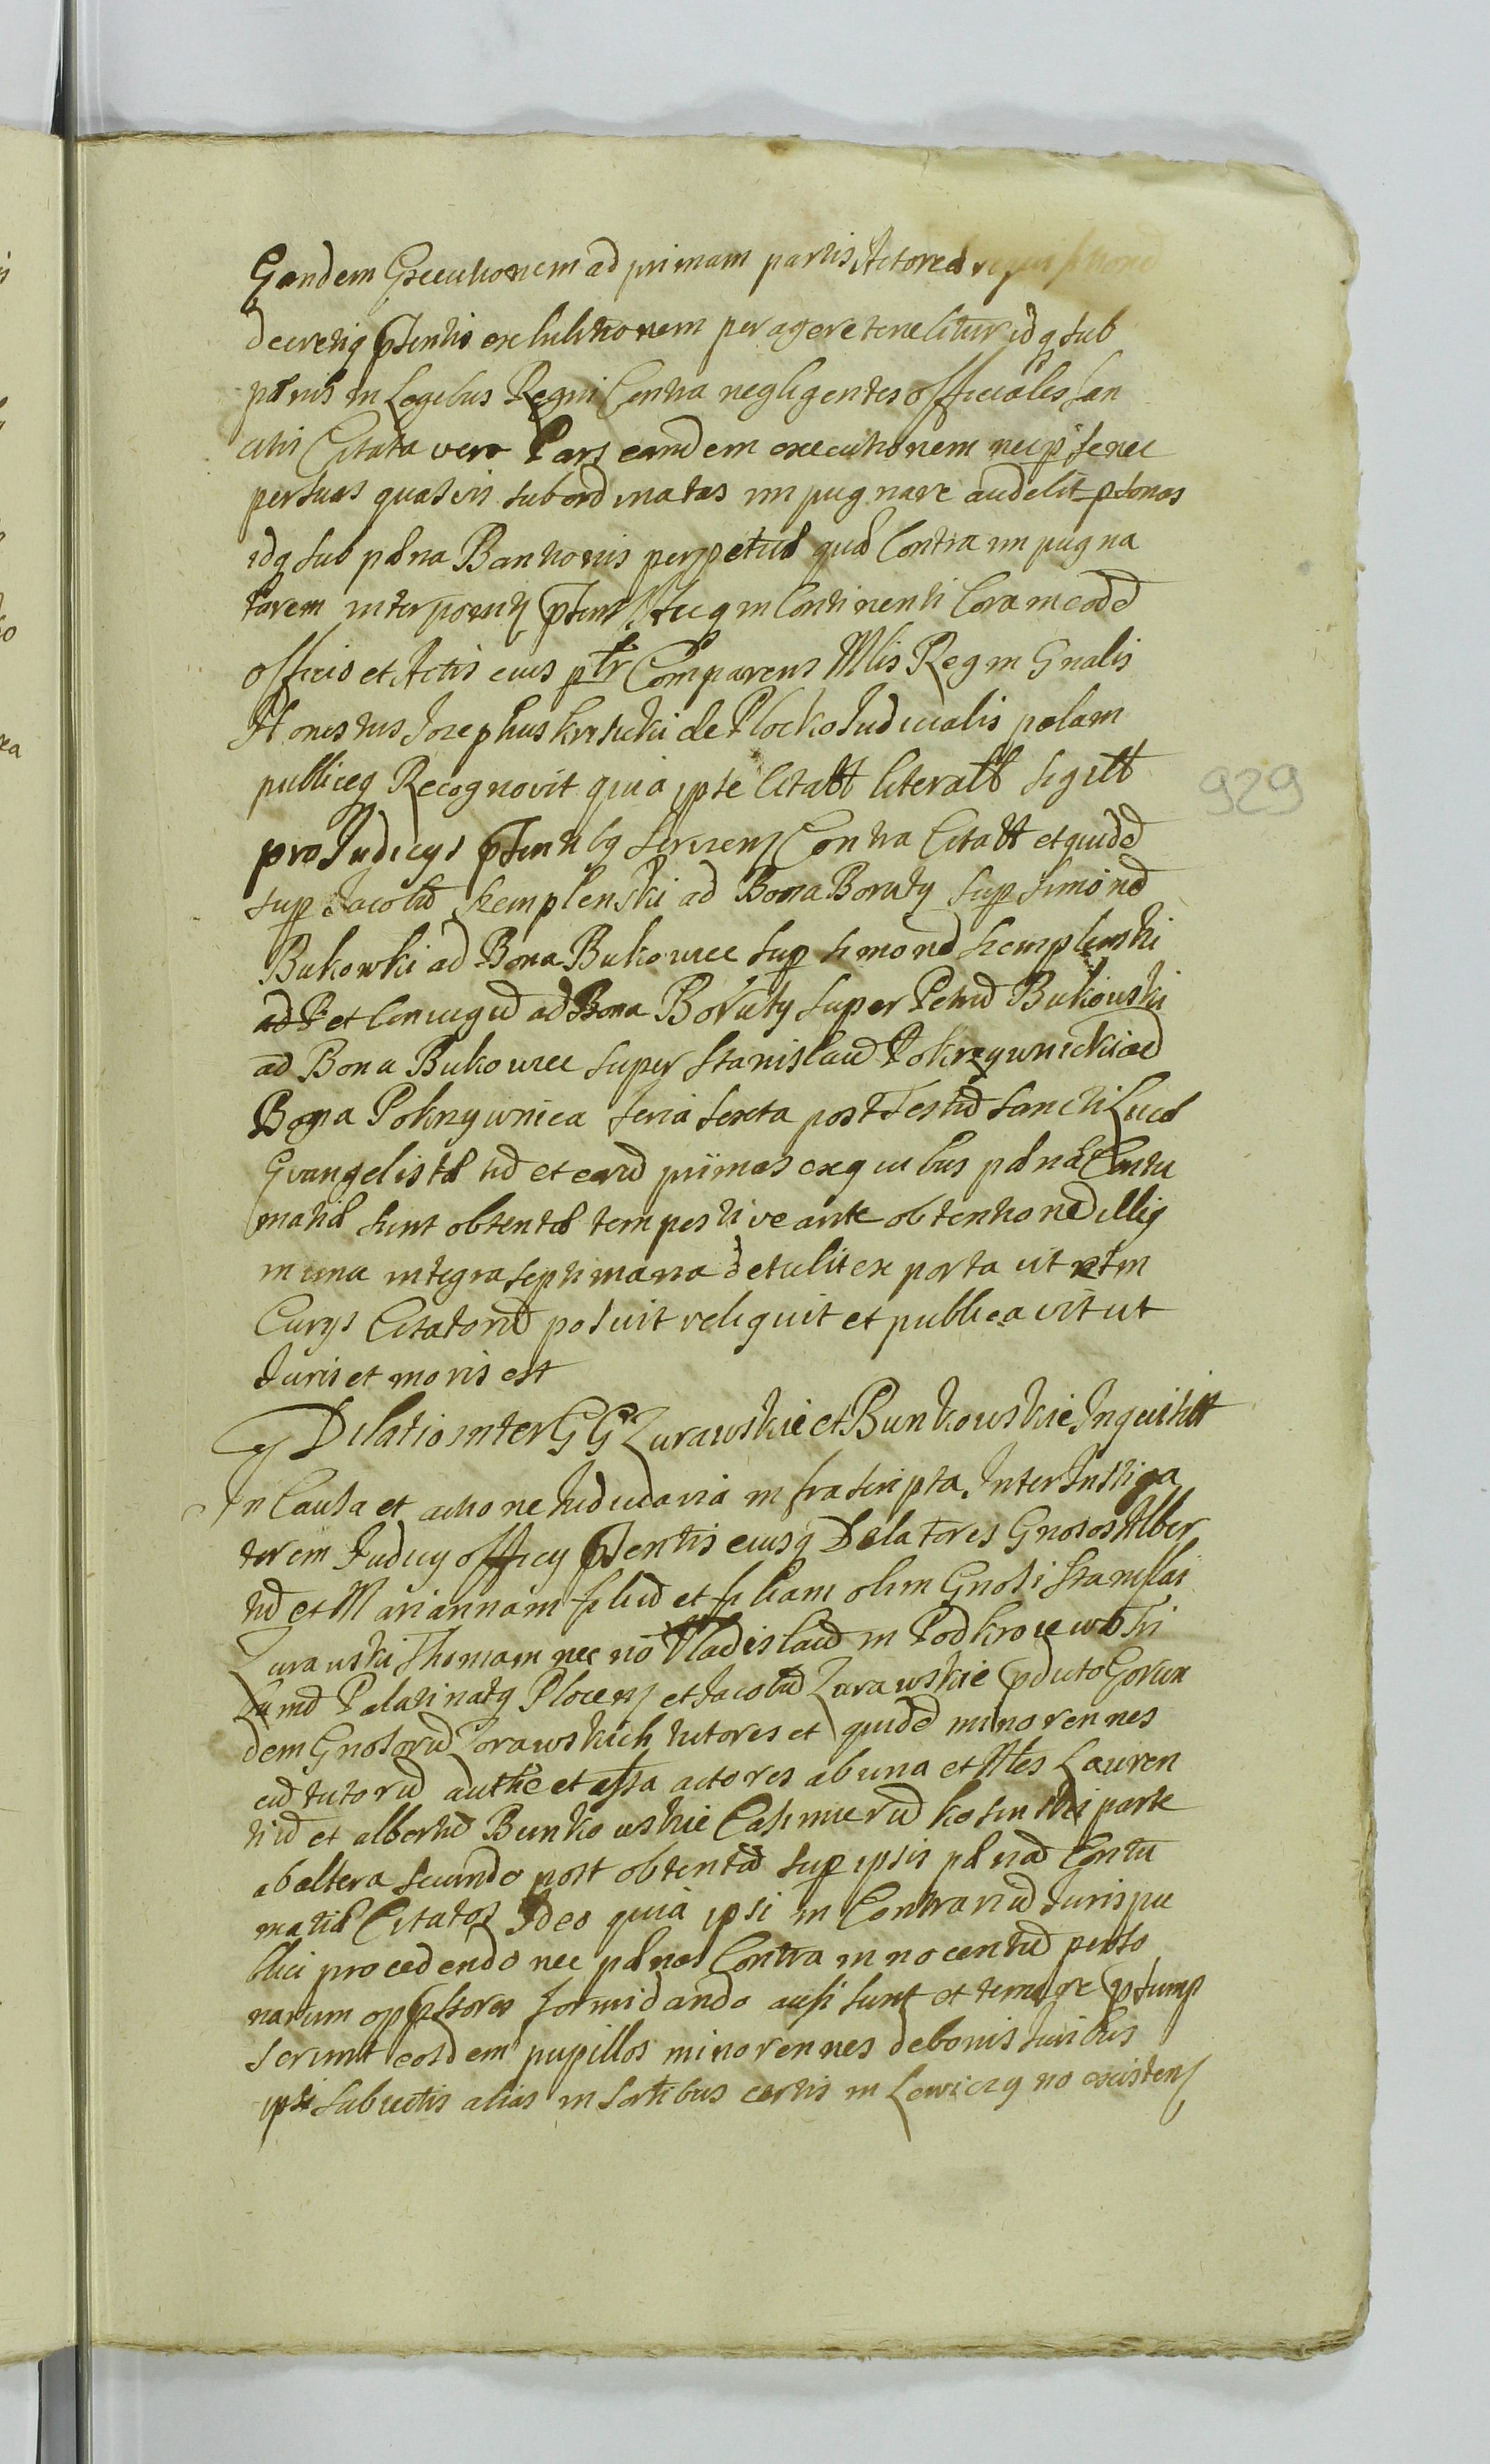 Eandem Executionem ad primam partis Actoreæ requisitione
decretiq pntis exhibitionem peragere tenebitur idq sub
pænis in Legibus Regni Contra negligentes officiales san
citis Citata vero Pars eandem executionem nec p se nec
per suas quasvis subordinatas impugnare audebit psonas
idq sub pæna Bannitionis perpetuæ quæ Contra impugna
torem interponitur in Continenti Coram eodē
officio et Actis eius pltr Comparens Mlis Regni Gnalis
Honestus Josephus de Plocko Judicialis palam
publiceq Recognovit quia ipse literatt sigill
pro Judicys pntibq Contra Citatt et quidē
sup Jacobū Kemplenski ad Bona Boruty sup Simonē
Bukowski ad Bona Bukowiec sup Simonē Kemplenski
ad B et Coniugē ad Bona Boruty super Petrū Bukowski
ad Bona Bukowiec super Stanislaū Pokrzywnicki ad
Bona Pokrzywnica feria sexta post Festū Sancti Lucæ
Evangelistæ tū et earū primas ex quibus pæna Contu
matiæ sunt obtentæ tempestive ante obtentionē illiq
in una integra septimana detulit exportavit
Curys Citatorū posuit reliquit et publicavit ut
Juris et moris est
Dilatio inter GG Zurawskie et Bunkowskie Inquisitt
In Causa et actione Judiciaria infrascripta Inter Instiga
torem Judicy officy pntis eiusq Delatores Gnosos Alber
tū et Mariannam filiū et filiam olim Gnosi Stanislai
Zurawski Thomam nec nō Vladislaū in
Palatinatq Plocen et Jacobū Zurawskie
dem Gnosorū Zorawskich tutores et quidē minorennes
cū tutorū authe et actores ab una et Nles Lauren
tiū et albertū Bunkowskie Casimierū Kosinski parte
ab altera secundo post obtentā sup ipsis pænā Contu
matiæ Citatos Ideo quia ipsi in Contrariū Juris pu
blici procedendo nec pænas Contra innocentū perso
narum oppssores formidando ausi sunt et temere psump
serunt eosdem pupillos minorennes de bonis Juribus
ipsi subiectis alias in sortibus certis in Lewiczyno existen
929